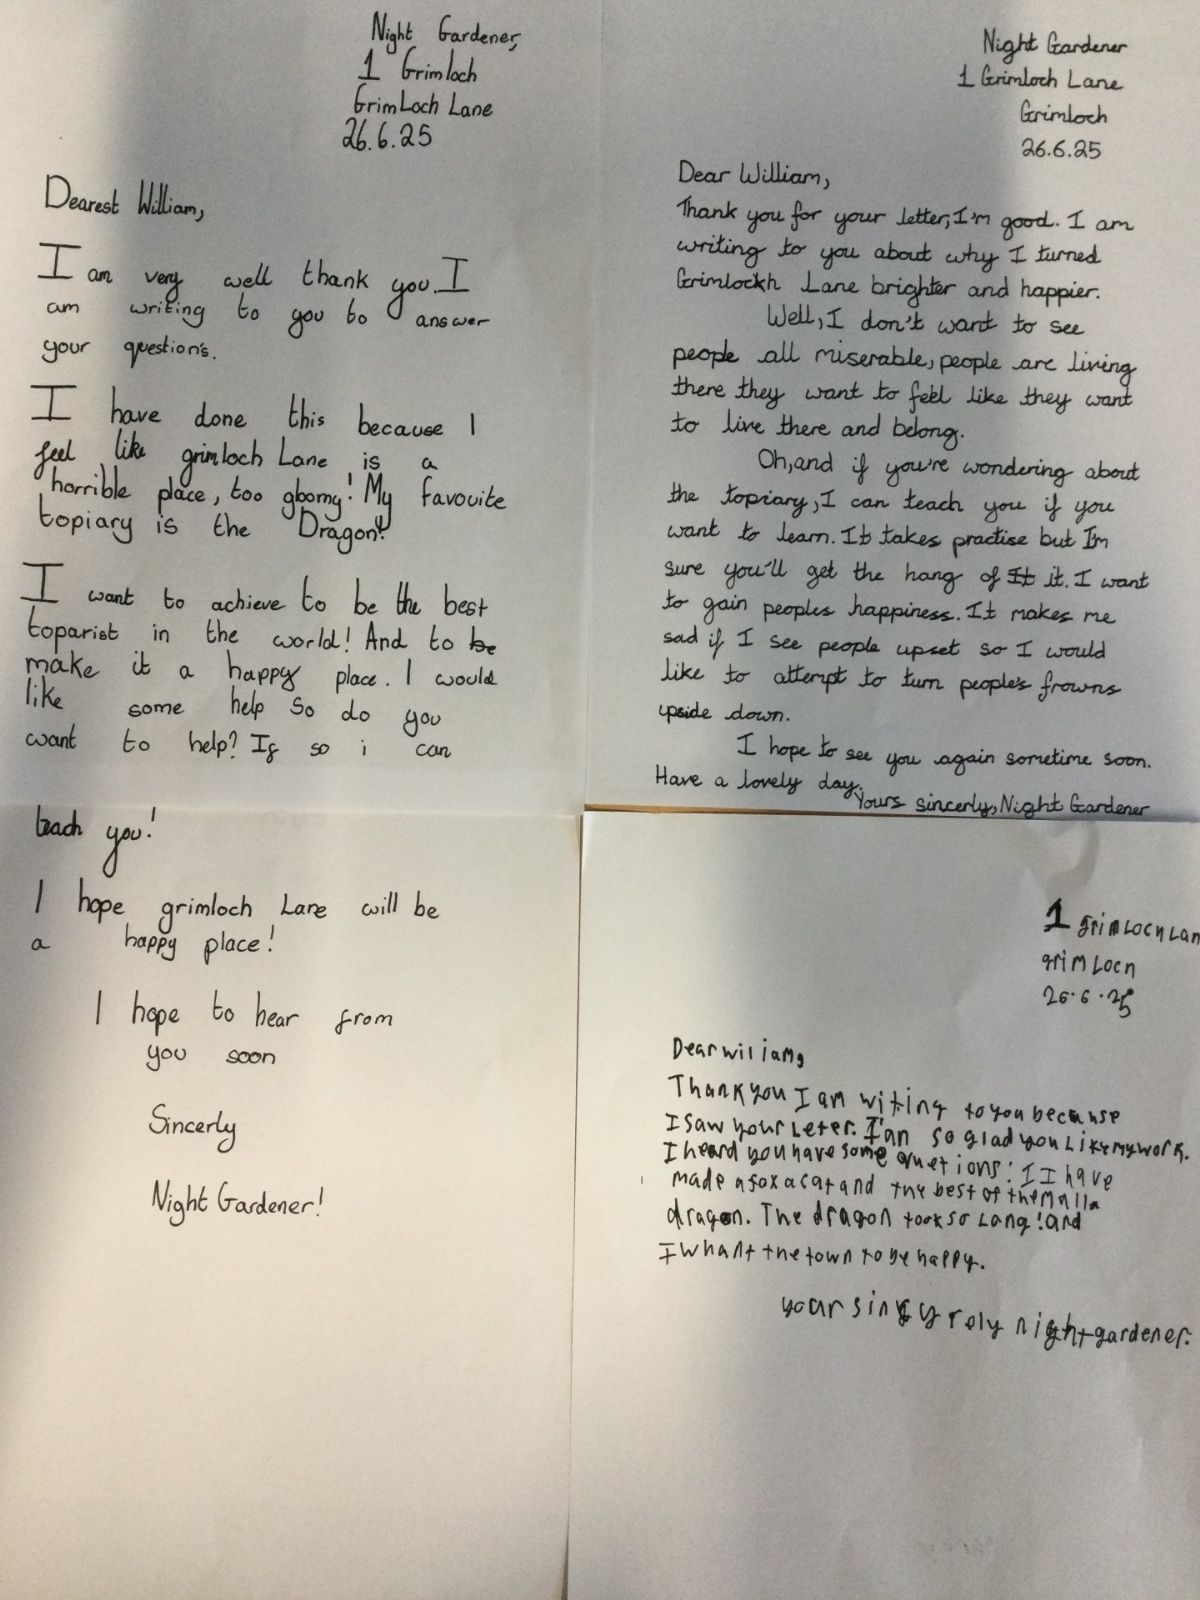 Night Gardener,
1 Grimloch
GrimLoch Lane
26.6.25
Dearest William,
I am very well thank you. I
am writing to you to answer
your question's.
I have done this because I
feel like grimloch Lane is a
horrible place, too gloomy! My favouite
topiary is the Dragon!
I want to achieve to be the best
toparist in the world! And to be
make it a happy place. I would
like some help so do you
want to help? If so i can
teach you!
I hope grimloch Lane will be
a happy place!
I hope to hear from
you soon
Sincerly
Night Gardener!
Night Gardener
1 Grimloch Lane
Grimloch
26.6.25
Dear William,
Thank you for your letter, I'm good. I am
writing to you about why I turned
Grimlockh Lane brighter and happier.
Well, I don't want to see
people all miserable, people are living
there they want to feel like they want
to live there and belong.
Oh, and if you're wondering about
the topiary, I can teach you if you
want to learn. It takes practise but I'm
sure you'll get the hang of It it. I want
to gain peoples happiness. It makes me
sad if I see people upset so I would
like to attempt to turn people's frowns
upside down.
I hope to see you again sometime soon.
Have a lovely day.
Yours sincerly, Night Gardener
1 grimLochLan
grimLoch
26.6.25
Dear wiliam,
Thank you I am witing to you because
I saw your Leter. I'an so glad you Like my work.
I heard you have some quetions: I I have
made a fox a cat and the best of them all a
dragon. The dragon took so Long! and
I whant the town to be happy.
your sinsyrely night gardener.